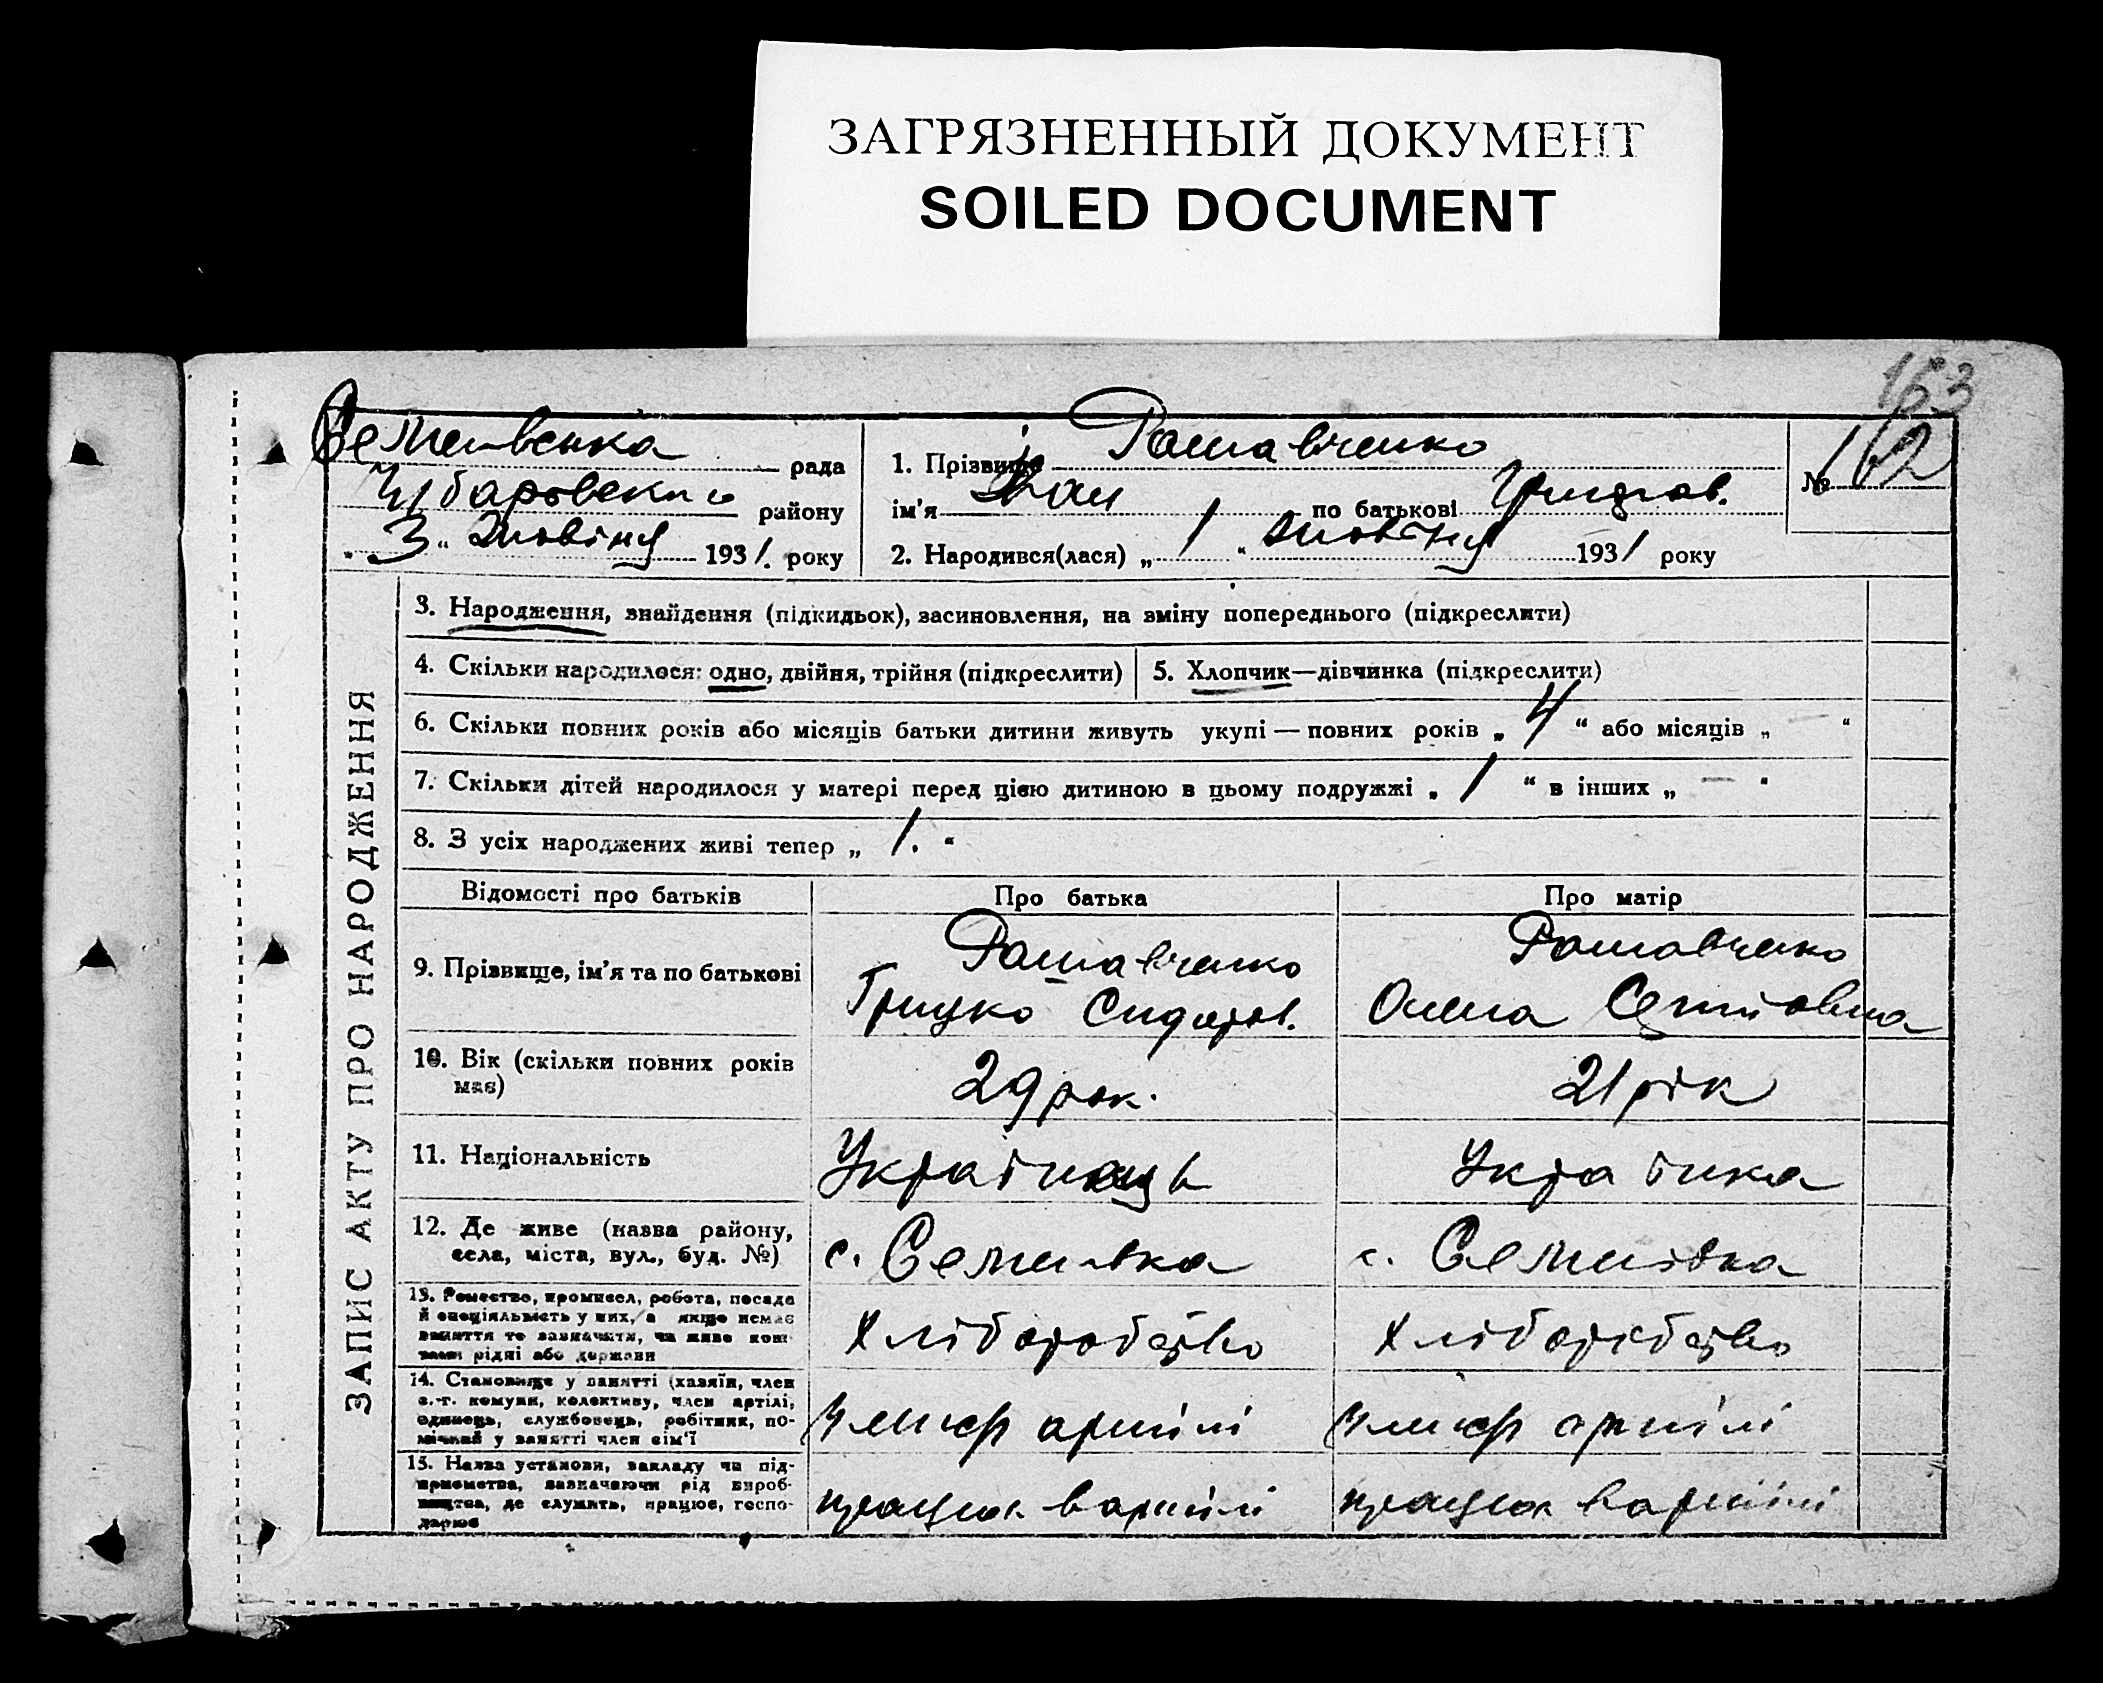 ЗАГРЯЗНЕННЫЙ ДОКУМЕНТ
SOILED DOCUMENT
153
Семенівська рада
Чубарівського району
"3" Жовтня 1931. року
1. Прізвище
ім'я Іван по батькові Грицьков.
№ 162
2. Народився(лася) „1" Жовтня 1931 року
ЗАПИС АКТУ ПРО НАРОДЖЕННЯ
3. Народження, знайдення (підкидьок), засиновлення, на зміну попереднього (підкреслити)
4. Скільки народилося: одно, двійня, трійня (підкреслити)
5. Хлопчик—дівчинка (підкреслити)
6. Скільки повних років або місяців батьки дитини живуть укупі — повних років „4" або місяців „—"
7. Скільки дітей народилося у матері перед цією дитиною в цьому подружжі „1" в інших „—"
8. З усіх народжених живі тепер „1."
Відомості про батьків
Про батька
Про матір
9. Прізвище, ім'я та по батькові
Грицько Сидоров.
Олена
10. Вік (скільки повних років
має)
29 рок.
21 рік
11. Національність
Українець
Українка
12. Де живе (назва району,
села, міста, вул., буд. №)
с. Семенівка
с. Семенівка
13. Ремество, промисел, робота, посада
й спеціяльність у них, а якщо немає
заняття то зазначити, чи живе кош-
тами рідні або держави
Хліборобство
Хліборобство
14. Становище у занятті (хазяїн, член
с.-г. комуни, колективу, член артілі,
одинець, службовець, робітник, по-
мічний у занятті член сім'ї
Член артілі
Член артілі
15. Назва установи, закладу чи під-
приємства, зазначаючи рід вироб-
ництва, де служить, працює, госпо-
дарює
працює в артілі
працює в артілі